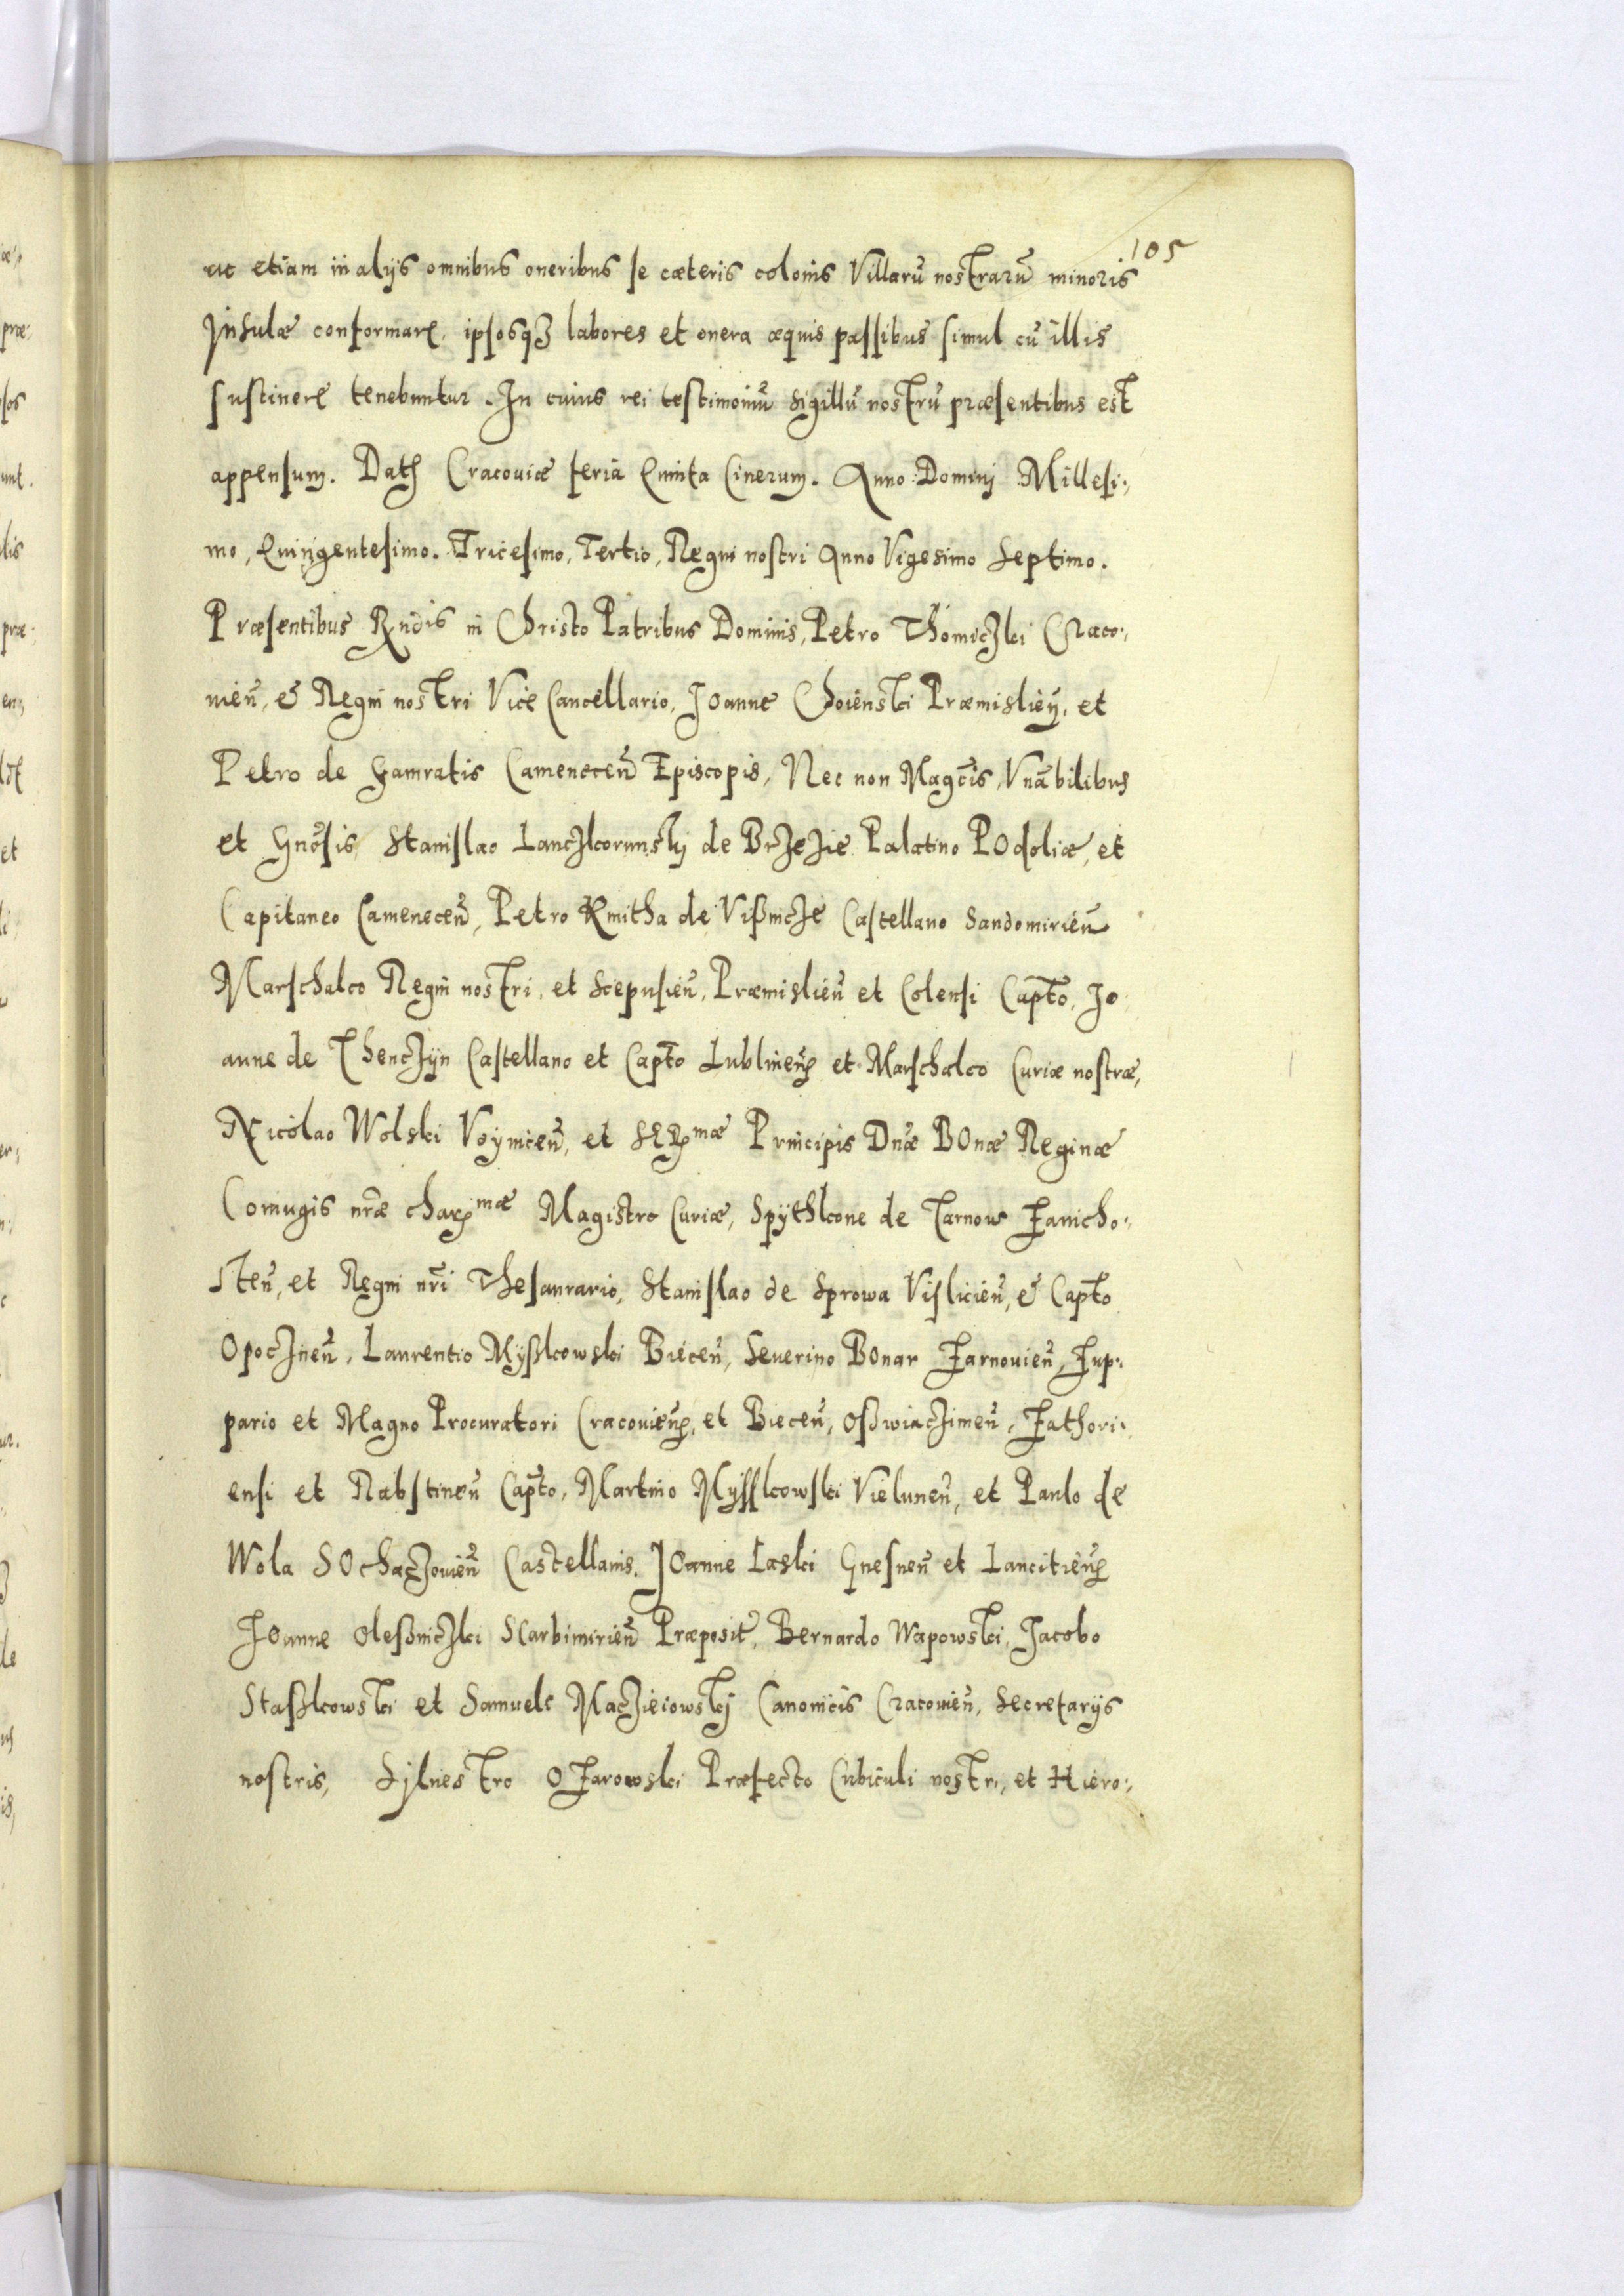 105
ac etiam in alijs omnibus oneribus se cæteris colonis Villarũ nostrarũ minoris
Insulæ conformare, ipsosqʒ labores et onera æquis passibus simul cũ illis
sustinere tenebuntur. In cuius rei testimoniũ Sigillũ nostrũ præsentibus est
appensum. Dat̄ Cracouiæ feria Quinta Cinerum. Anno Domini Millesi:,
mo, Quingentesimo. Tricesimo, Tertio, Regni nostri Anno Vigesimo Septimo.
Præsentibus Rndis in Christo Patribus Dominis, Petro Thomiczki Craco:,
uień, & Regni nostri Vice Cancellario, Joanne Choienski Præmislień, et
Petro de Gamratis Cameneceń Episcopis, Nec non Magcis, Vnãbilibus
et Gnõsis, Stanislao Lanczkorunskj de Brzezie Palatino POdoliæ, et
Capitaneo Cameneceń, Petro Kmitha de Vißnicze Castellano Sandomirień
Marschalco Regni nostri, et Scepusień, Præmislień et Colensi Capto, Jo
anne de Thenczÿn Castellano et Capto Lublineń et Marschalco Curiæ nostræ,
Nicolao Wolski Voyniceń, et SERmæ Principis Dnæ BOnæ Reginæ
Coniugis nræ charmæ Magistro Curiæ, Spÿthkone de Tarnow Zawicho:,
steń, et Regni nri Thesaurario, Stanislao de Sprowa Vislicień, & Capto
Opoczneń, Laurentio Myßkowski Bieceń, Seuerino BOnar Zarnouień, Zup:
pario et Magno Procuratori Cracouień, et Bieceń, Oßwiaczimeń, Zathori:,
ensi et Rabstineń Capto, Martino Mÿsskowski Vieluneń, et Paulo de
Wola SOchaczouień Castellanis, JOanne Laski Gnesneń et Lancitień
JOanne Oleßniczki Skarbimirień Præposit̄, Bernardo Wapowski, Jacobo
Staßkowski et Samuele Maczieiowskj Canonicis Cracouień, Secretarijs
nostris, Syluestro OZarowski Præfecto Cubiculi nostri, et Hiero:,